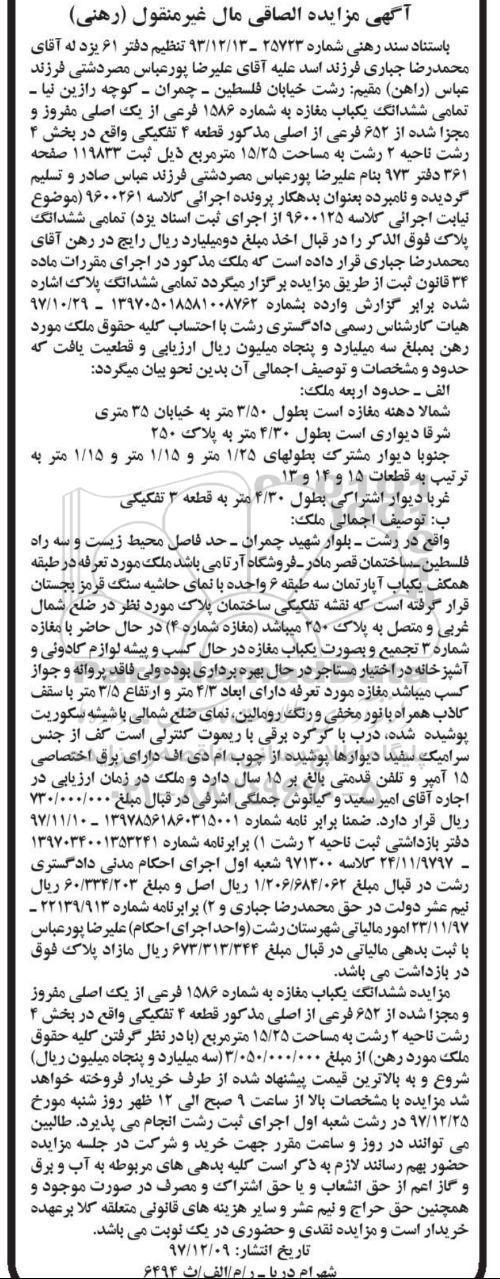 آگهی مزایده الصاقی مال غیرمنقول (رهنی)
باستناد سند رهنی شماره ۲۵۷۲۳ ـ ۹۳/۱۲/۱۳ تنظیم دفتر ۶۱ یزد له آقای
محمدرضا جباری فرزند اسد علیه آقای علیرضا پورعباس مصردشتی فرزند
عباس (راهن) مقیم: رشت خیابان فلسطین ـ چمران ـ کوچه رازبن نیا ـ
تمامی ششدانگ یکباب مغازه به شماره ۱۵۸۶ فرعی از یک اصلی مفروز و
مجزا شده از ۶۵۲ فرعی از اصلی مذکور قطعه ۴ تفکیکی واقع در بخش ۴
رشت ناحیه ۲ رشت به مساحت ۱۵/۲۵ مترمربع ذیل ثبت ۱۱۹۸۳۳ صفحه
۳۶۱ دفتر ۹۷۳ بنام علیرضا پورعباس مصردشتی فرزند عباس صادر و تسلیم
گردیده و نامبرده بعنوان بدهکار پرونده اجرائی کلاسه ۹۶۰۰۲۶۱ (موضوع
نیابت اجرائی کلاسه ۹۶۰۰۱۲۵ از اجرای ثبت اسناد یزد) تمامی ششدانگ
پلاک فوق الذکر را در قبال اخذ مبلغ دومیلیارد ریال رایج در رهن آقای
محمدرضا جباری قرار داده است که ملک مذکور در اجرای مقررات ماده
۳۴ قانون ثبت از طریق مزایده برگزار میگردد تمامی ششدانگ پلاک اشاره
شده برابر گزارش وارده بشماره ۱۳۹۷۰۵۰۱۸۵۸۱۰۰۸۷۶۲ ـ ۹۷/۱۰/۲۹
هیات کارشناس رسمی دادگستری رشت با احتساب کلیه حقوق ملک مورد
رهن بمبلغ سه میلیارد و پنجاه میلیون ریال ارزیابی و قطعیت یافت که
حدود و مشخصات و توصیف اجمالی آن بدین نحو بیان میگردد:
الف ـ حدود اربعه ملک:
شمالا دهنه مغازه است بطول ۳/۵۰ متر به خیابان ۳۵ متری
شرقا دیواری است بطول ۴/۳۰ متر به پلاک ۲۵۰
جنوبا دیوار مشترک بطولهای ۱/۲۵ متر و ۱/۱۵ متر و ۱/۱۵ متر به
ترتیب به قطعات ۱۵ و ۱۴ و ۱۳
غربا دیوار اشتراکی بطول ۴/۳۰ متر به قطعه ۳ تفکیکی
ب: توصیف اجمالی ملک:
واقع در رشت ـ بلوار شهید چمران ـ حد فاصل محیط زیست و سه راه
فلسطین ـ ساختمان قصر مادر ـ فروشگاه آرتا می باشد ملک مورد تعرفه در طبقه
همکف یکباب آپارتمان سه طبقه ۶ واحده با نمای حاشیه سنگ قرمز بجستان
قرار گرفته است که نقشه تفکیکی ساختمان پلاک مورد نظر در ضلع شمال
غربی و متصل به پلاک ۲۵۰ میباشد (مغازه شماره ۴) در حال حاضر با مغازه
شماره ۳ تجمیع و بصورت یکباب مغازه در حال کسب و پیشه لوازم کادوئی و
آشپزخانه در اختیار مستاجر در حال بهره برداری بوده ولی فاقد پروانه و جواز
کسب میباشد مغازه مورد تعرفه دارای ابعاد ۴/۳ متر و ارتفاع ۳/۵ متر با سقف
کاذب همراه با نور مخفی و رنگ رومالین، نمای ضلع شمالی با شیشه سکوریت
پوشیده شده، درب با کرکره برقی با ریموت کنترلی است کف از جنس
سرامیک سفید دیوارها پوشیده از چوب ام دی اف دارای برق اختصاصی
۱۵ آمپر و تلفن قدمتی بالغ بر ۱۵ سال دارد و ملک در زمان ارزیابی در
اجاره آقای امیر سعید و کیانوش جملگی اشرفی در قبال مبلغ ۷۳۰/۰۰۰/۰۰۰
ریال قرار دارد. ضمنا برابر نامه شماره ۱۳۹۷۸۵۶۱۸۶۰۳۱۵۰۰۱ ـ ۹۷/۱۱/۱۰
دفتر بازداشتی ثبت ناحیه ۲ رشت ۱) برابرنامه شماره ۱۳۹۷۰۳۴۰۰۱۳۵۳۲۴۱
ـ ۲۴/۱۱/۹۷۹۷ کلاسه ۹۷۱۳۰۰ شعبه اول اجرای احکام مدنی دادگستری
رشت در قبال مبلغ ۱/۲۰۶/۶۸۴/۰۶۲ ریال اصل و مبلغ ۶۰/۳۳۴/۲۰۳ ریال
نیم عشر دولت در حق محمدرضا جباری و ۲) برابرنامه شماره ۲۲۱۳۹/۹۱۳ ـ
۲۳/۱۱/۹۷ امور مالیاتی شهرستان رشت (واحد اجرای احکام) علیرضا پورعباس
با ثبت بدهی مالیاتی در قبال مبلغ ۶۷۳/۳۱۳/۳۴۴ ریال مازاد پلاک فوق
در بازداشت می باشد.
مزایده ششدانگ یکباب مغازه به شماره ۱۵۸۶ فرعی از یک اصلی مفروز
و مجزا شده از ۶۵۲ فرعی از اصلی مذکور قطعه ۴ تفکیکی واقع در بخش ۴
رشت ناحیه ۲ رشت به مساحت ۱۵/۲۵ مترمربع (با در نظر گرفتن کلیه حقوق
ملک مورد رهن) از مبلغ ۳/۰۵۰/۰۰۰/۰۰۰ (سه میلیارد و پنجاه میلیون ریال)
شروع و به بالاترین قیمت پیشنهاد شده از طرف خریدار فروخته خواهد
شد مزایده با مشخصات بالا از ساعت ۹ صبح الی ۱۲ ظهر روز شنبه مورخ
۹۷/۱۲/۲۵ در رشت شعبه اول اجرای ثبت رشت انجام می پذیرد. طالبین
می توانند در روز و ساعت مقرر جهت خرید و شرکت در جلسه مزایده
حضور بهم رسانند لازم به ذکر است کلیه بدهی های مربوطه به آب و برق
و گاز اعم از حق انشعاب و یا حق اشتراک و مصرف در صورت موجود و
همچنین حق حراج و نیم عشر و سایر هزینه های قانونی متعلقه کلا برعهده
خریدار است و مزایده نقدی و حضوری در یک نوبت می باشد.
تاریخ انتشار: ۹۷/۱۲/۰۹
شهرام دریا ـ ر/م/الف/ث ۶۴۹۴